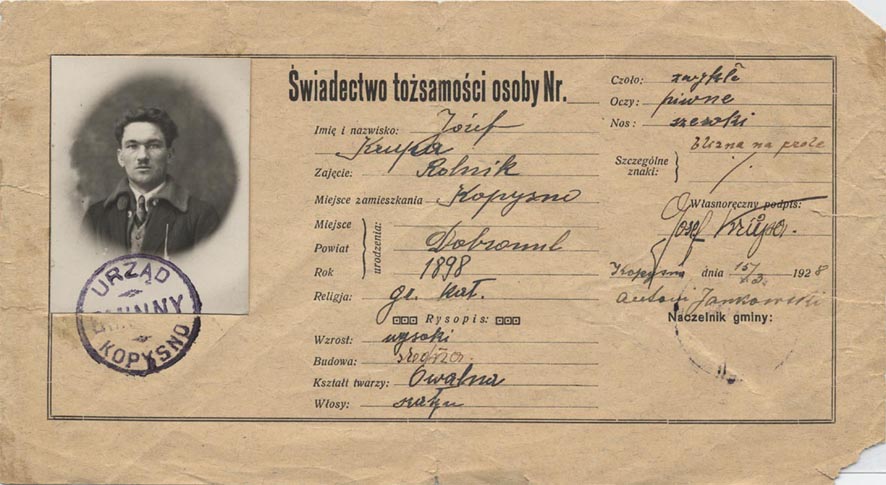 Świadectwo tożsamości osoby Nr.
Imię i nazwisko: Józef
Krupa
Zajęcie: Rolnik
Miejsce zamieszkania Kopysno
Miejsce
Powiat
urodzenia:
Dobromil
Rok 1898
Religja: gr. kat.
Rysopis:
Wzrost: wysoki
Budowa:
Kształt twarzy: Owalna
Włosy:
Czoło: zwykłe
Oczy: piwne
Nos: szeroki
Szczególne
znaki:
blizna na
Własnoręczny podpis:
Josef Krupa.
Kopysno dnia 15/3 1928
Antoni Jankowski
Naczelnik gminy:
URZĄD
GMINNY
KOPYSNO